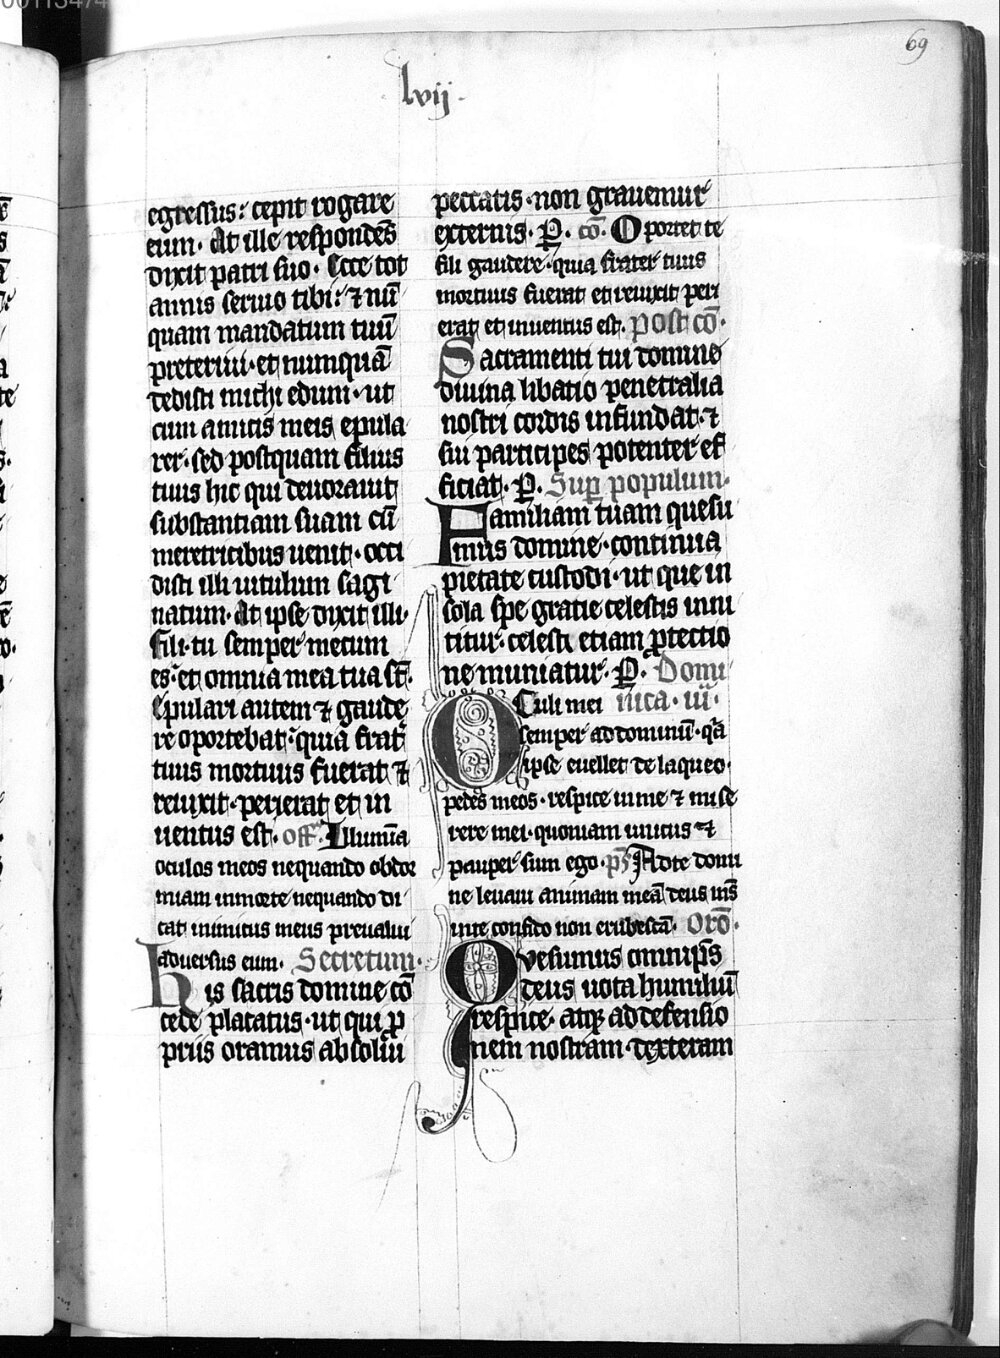 69
lvij
egressus: cepit rogare
eum. At ille respondēs
dixit patri suo. Ecce tot
annis seruio tibi: ⁊ nū
quam mandatum tuū
preteriui. et numquā
dedisti michi edum. ut
cum amicis meis epula
rer. sed postquam filius
tuus hic qui deuorauit
substantiam suam cū
meretricibus uenit. occi
disti illi uitulum sagi
natum. At ipse dixit illi.
Fili. tu semper mecum
es. et omnia mea tua sūt.
Epulari autem ⁊ gaude
re oportebat. quia frater
tuus mortuus fuerat ⁊
reuixit. perierat et in
uentus est. off. Illumīa
oculos meos nequando obdor
miam in morte nequando di
cat inimicus meus preualui
aduersus eum. Secretum.
His sacris domine cō
cede placatus. ut qui ꝓ
priis oramus absolui
peccatis. non grauemur
externis. P. cō. Oportet te
fili gaudere. quia frater tuus
mortuus fuerat et reuixit peri
erat et inuentus est. Post cō.
Sacramenti tui domine
diuina libatio penetralia
nostri cordis infundat. ⁊
sui participes potenter ef
ficiat. P. Sup populum.
Familiam tuam quesu
mus domine. continua
pietate custodi. ut que in
sola spe gratie celestis inni
titur. celesti etiam ꝓtectio
ne muniatur. P. Domi
Oculi mei nica. iii.
semper ad dominū. qa
ipse euellet de laqueo.
pedes meos. respice in me ⁊ mise
rere mei. quoniam unicus ⁊
pauper sum ego. ps Ad te domi
ne leuaui animam meā deus ms
in te confido non erubescā. Orō.
Quesumus omnips
deus uota humiliū
respice. atqꝫ ad defensio
nem nostram. dexteram